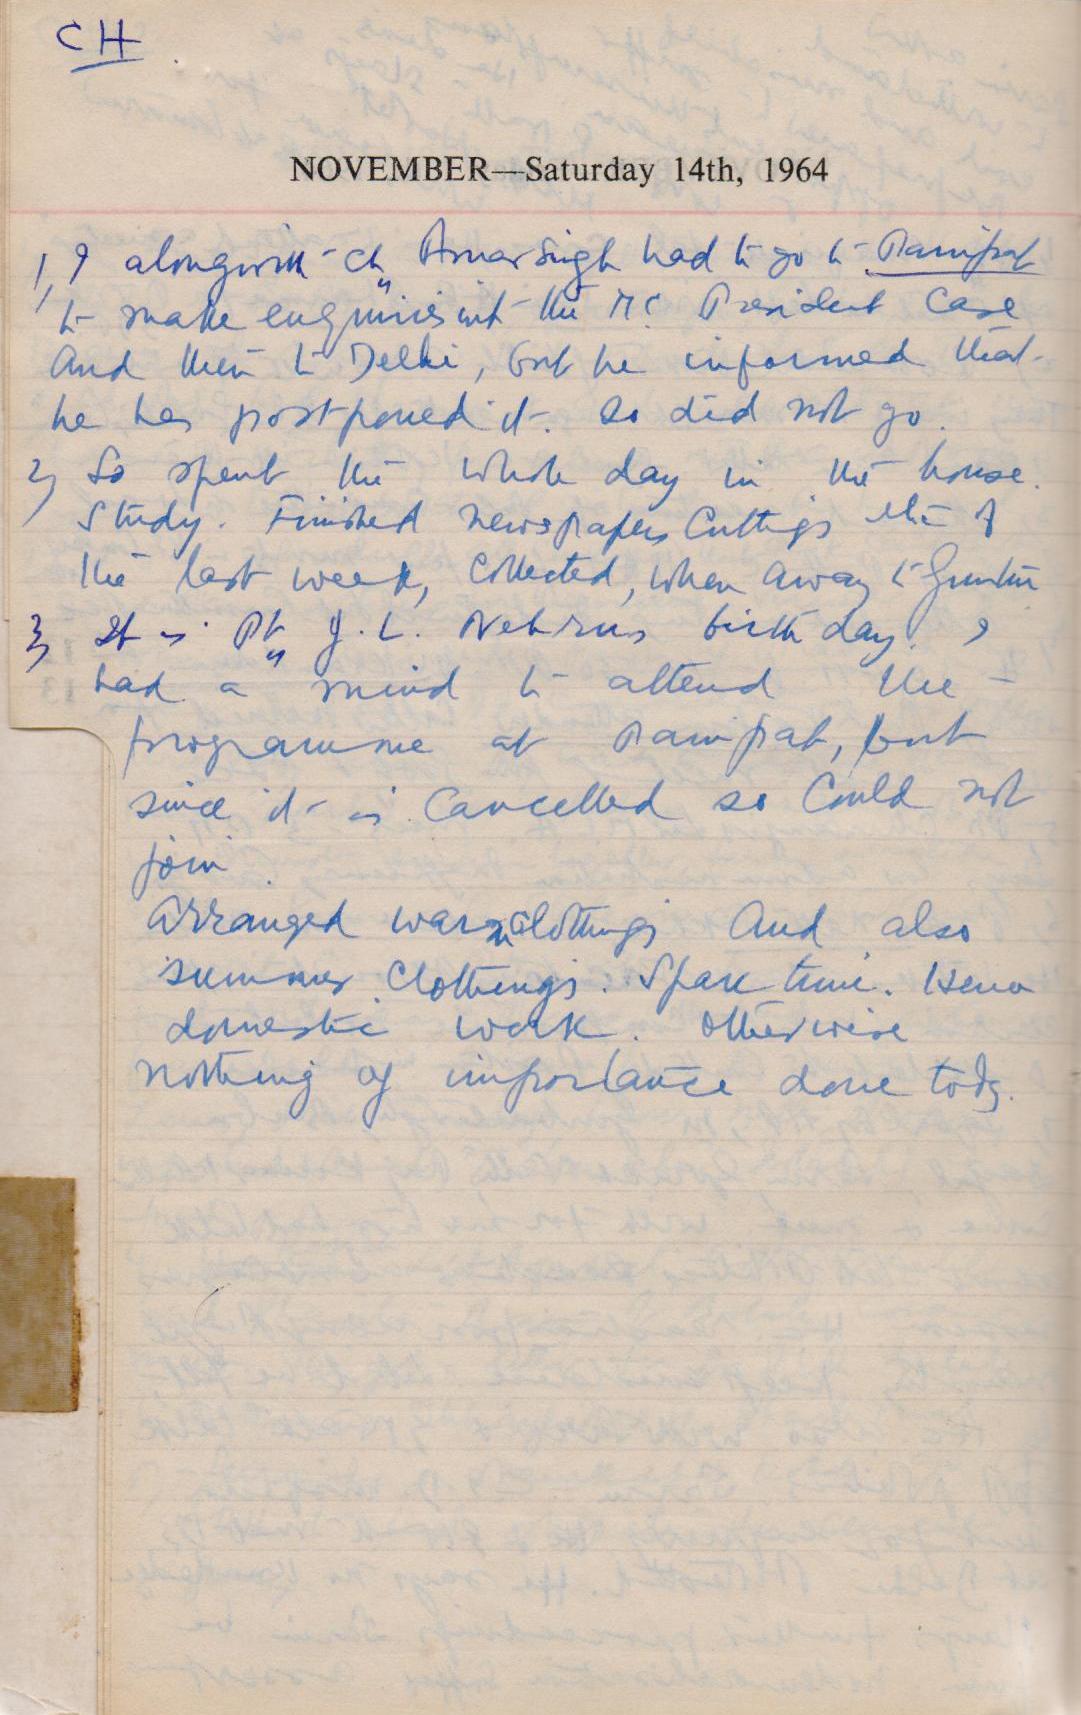 CH
NOVEMBER—Saturday 14th, 1964
1, I alongwith Ch. Amar Singh had to go to Panipat
to make enquiries int the M.C. President Case
And then to Delhi, but he informed that
he has postponed it. So did not go.
2, So spent the whole day in the house.
Study. Finished newspapers Cuttings of
the last week, Collected, when away to
3, It is Pt. J. L. Nehrus birth day. I
had a mind to attend the
programme at Panipat, but
since it is Cancelled so Could not
join.
Arranged warm clothings And also
summer Clothings. Spare time.
domestic work. Otherwise
nothing of importance done today.